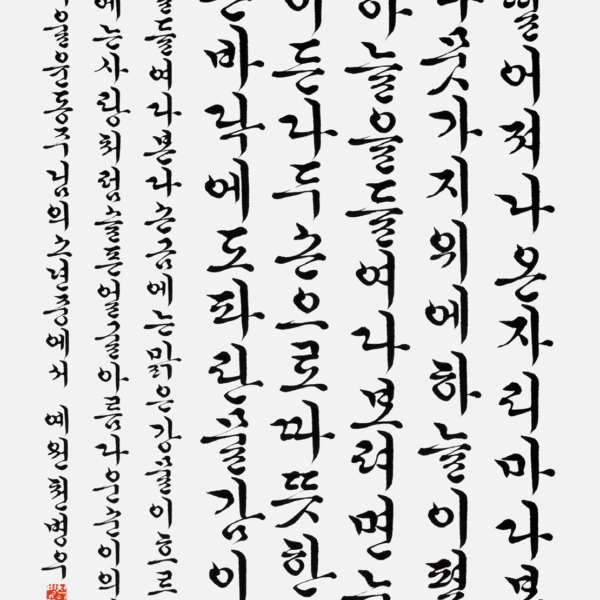 떨어져나온자리마다
나뭇가지위에하늘이펼
하늘을들여다보려면
이든다두손으로따뜻한
바닥에도파란물감이
들여다본다손금에는맑은강물이흐르
에는사랑처럼슬픈얼굴아름다운순이의
울윤동주님의소년중에서 예원천병우